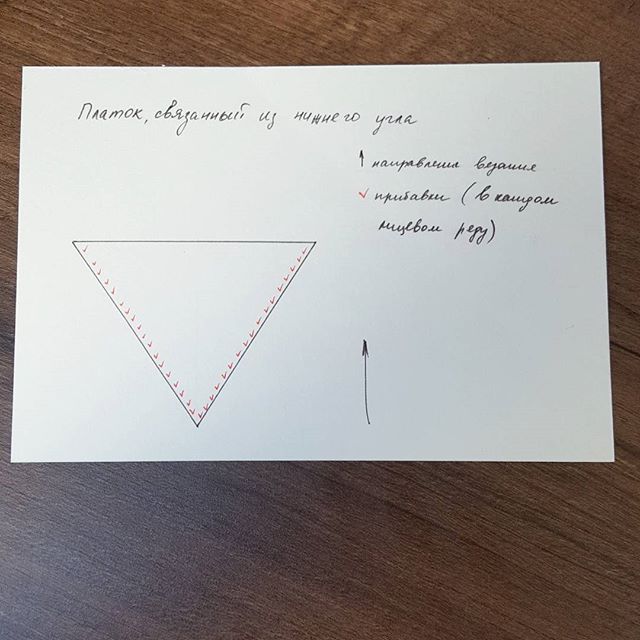 Платок, связанный из нижнего угла
↑ направления вязания
✓ прибавки (в каждом
лицевом ряду)